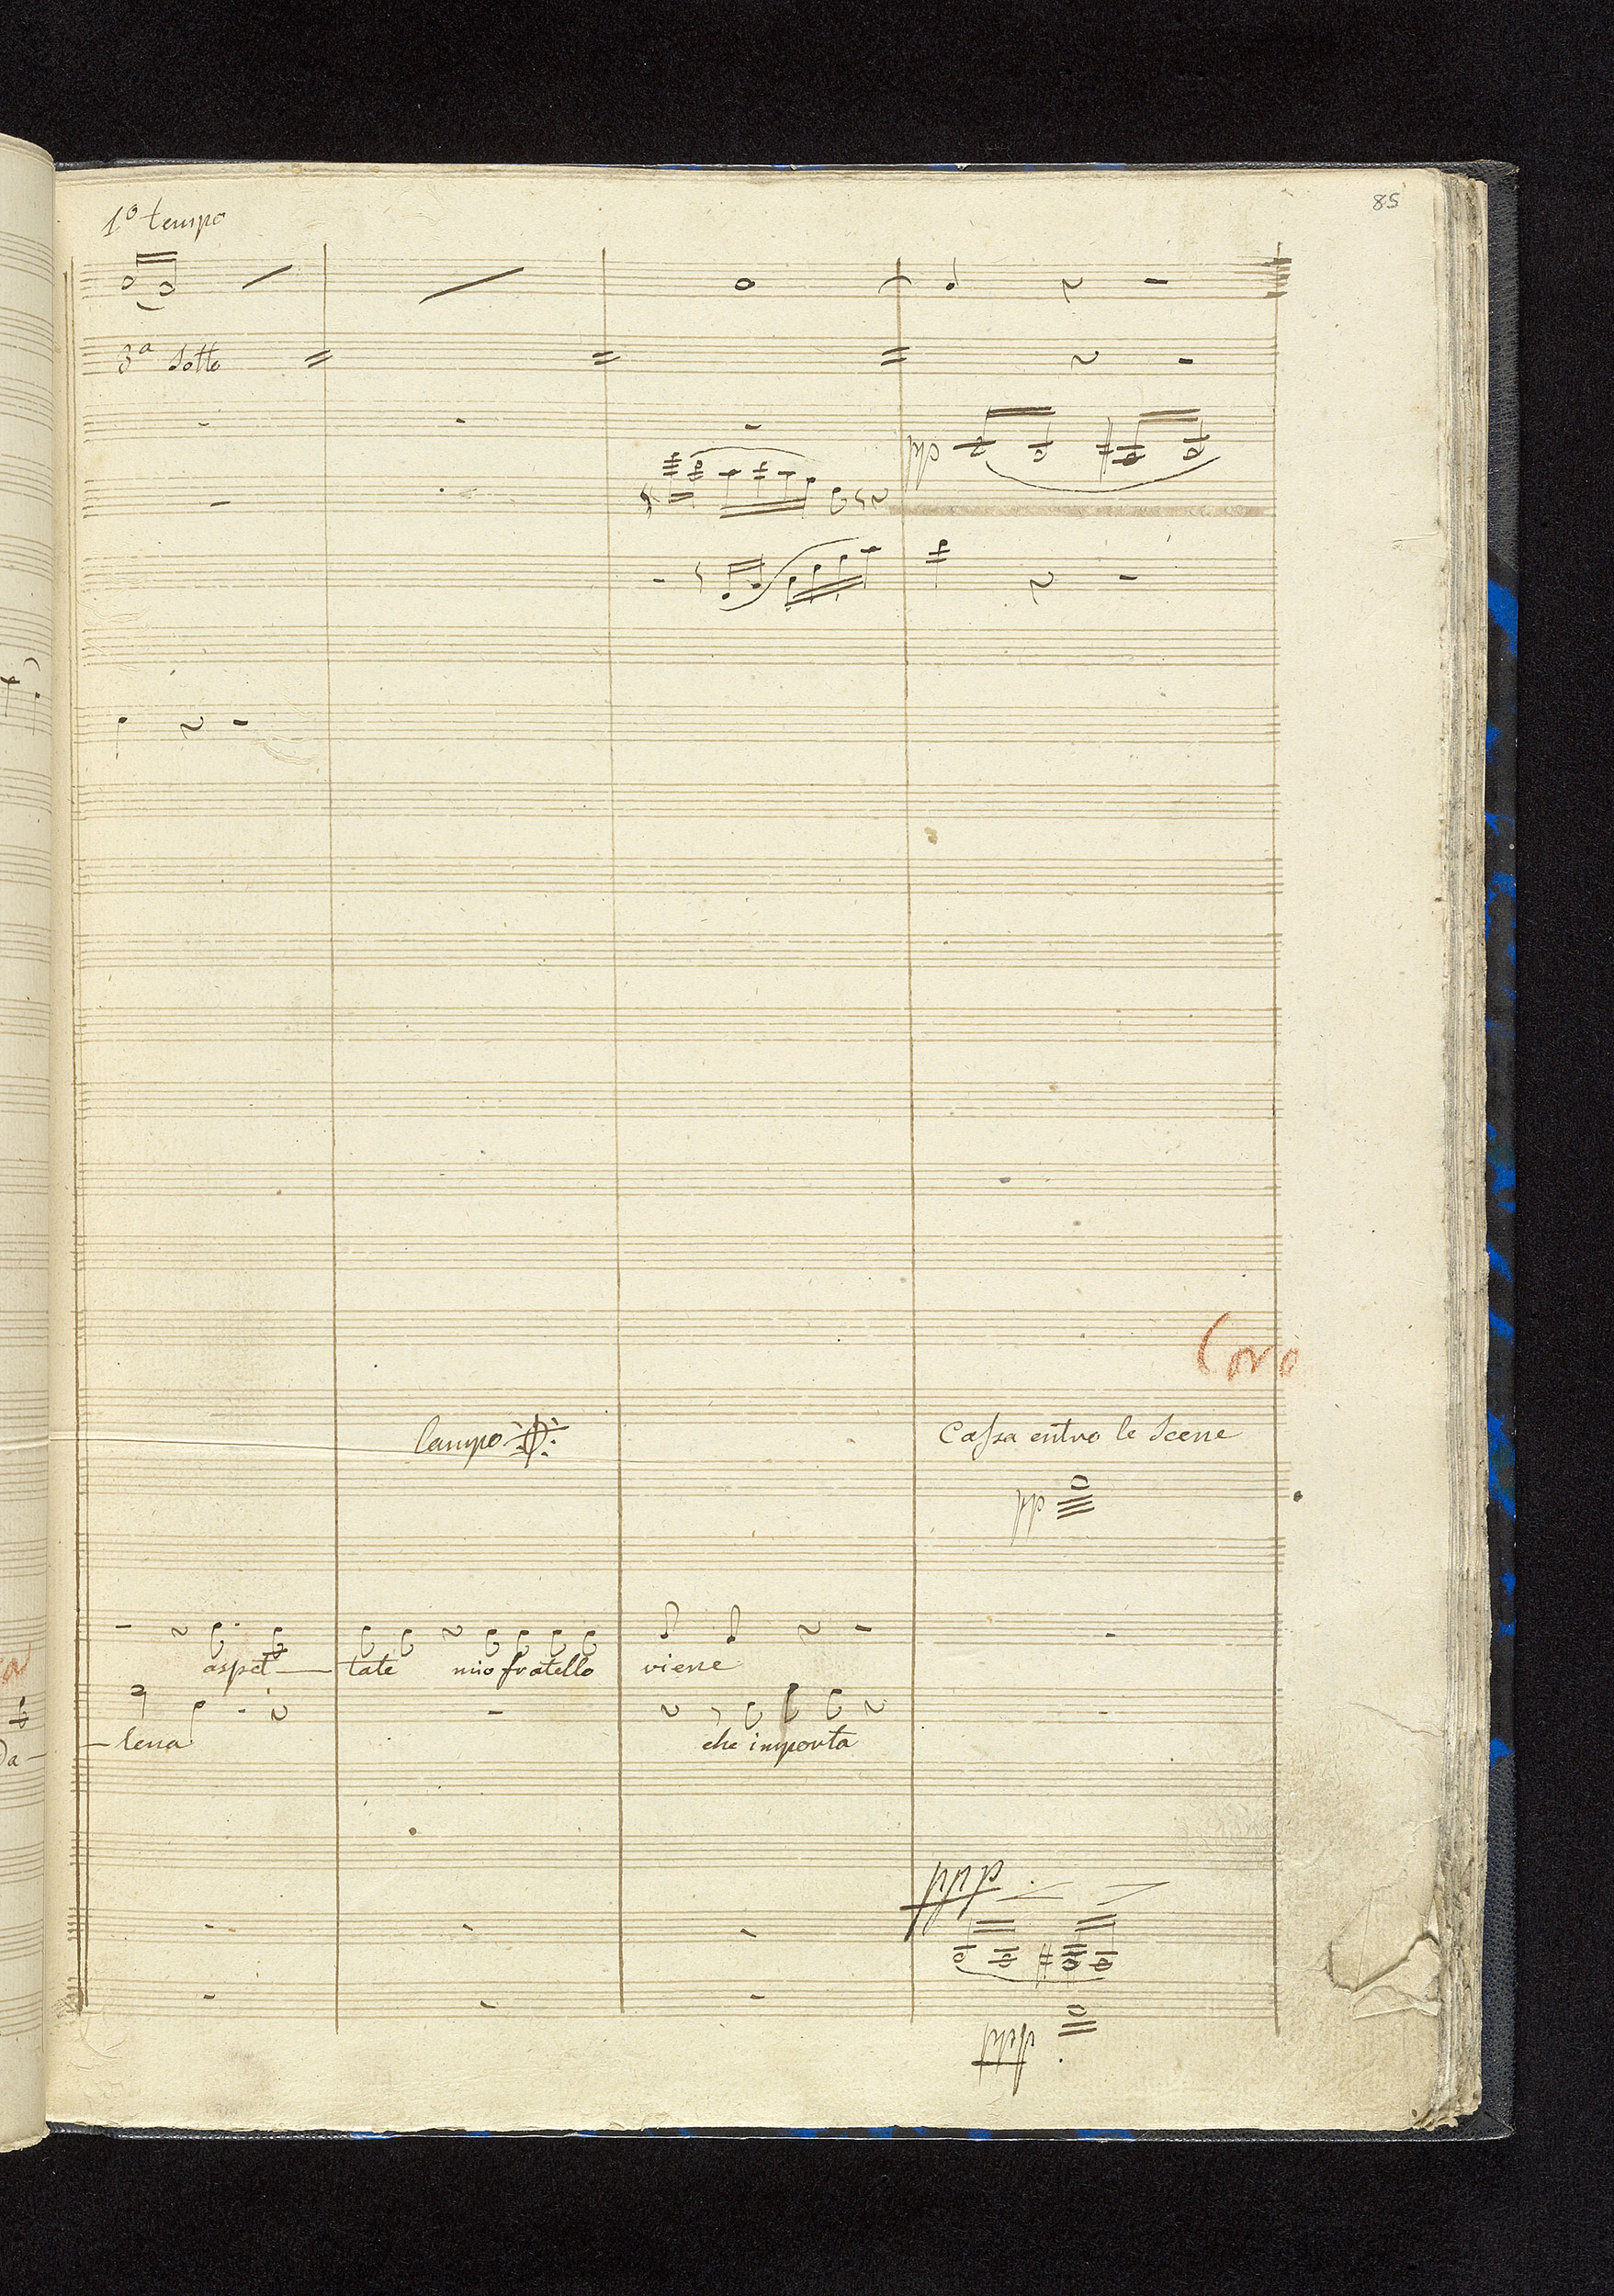 85
1º tempo
3ª Sotto
pp
Coro
lampo
Cassa entro le Scene
pp
aspet—tate mio fratello viene
Da—
—lena
che importa
ppp
ppp